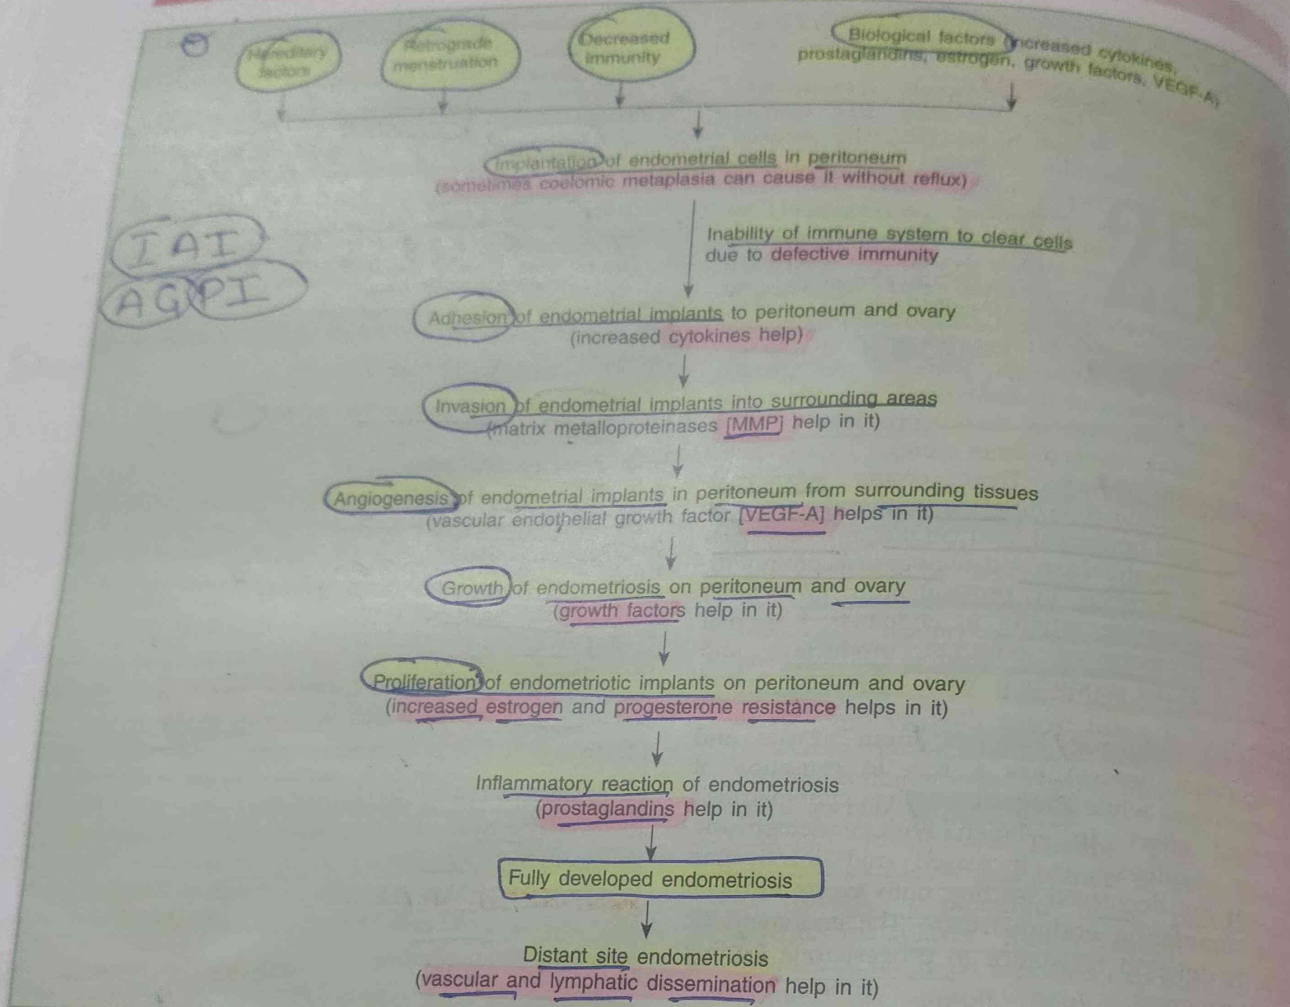 Hereditary
factors
Retrograde
menstruation
Decreased
immunity
Biological factors (increased cytokines,
prostaglandins, estrogen, growth factors, VEGF-A)
Implantation of endometrial cells in peritoneum
(sometimes coelomic metaplasia can cause it without reflux)
Inability of immune system to clear cells
due to defective immunity
IAI
AGPI
Adhesion of endometrial implants to peritoneum and ovary
(increased cytokines help)
Invasion of endometrial implants into surrounding areas
(matrix metalloproteinases [MMP] help in it)
Angiogenesis of endometrial implants in peritoneum from surrounding tissues
(vascular endothelial growth factor [VEGF-A] helps in it)
Growth of endometriosis on peritoneum and ovary
(growth factors help in it)
Proliferation of endometriotic implants on peritoneum and ovary
(increased estrogen and progesterone resistance helps in it)
Inflammatory reaction of endometriosis
(prostaglandins help in it)
Fully developed endometriosis
Distant site endometriosis
(vascular and lymphatic dissemination help in it)